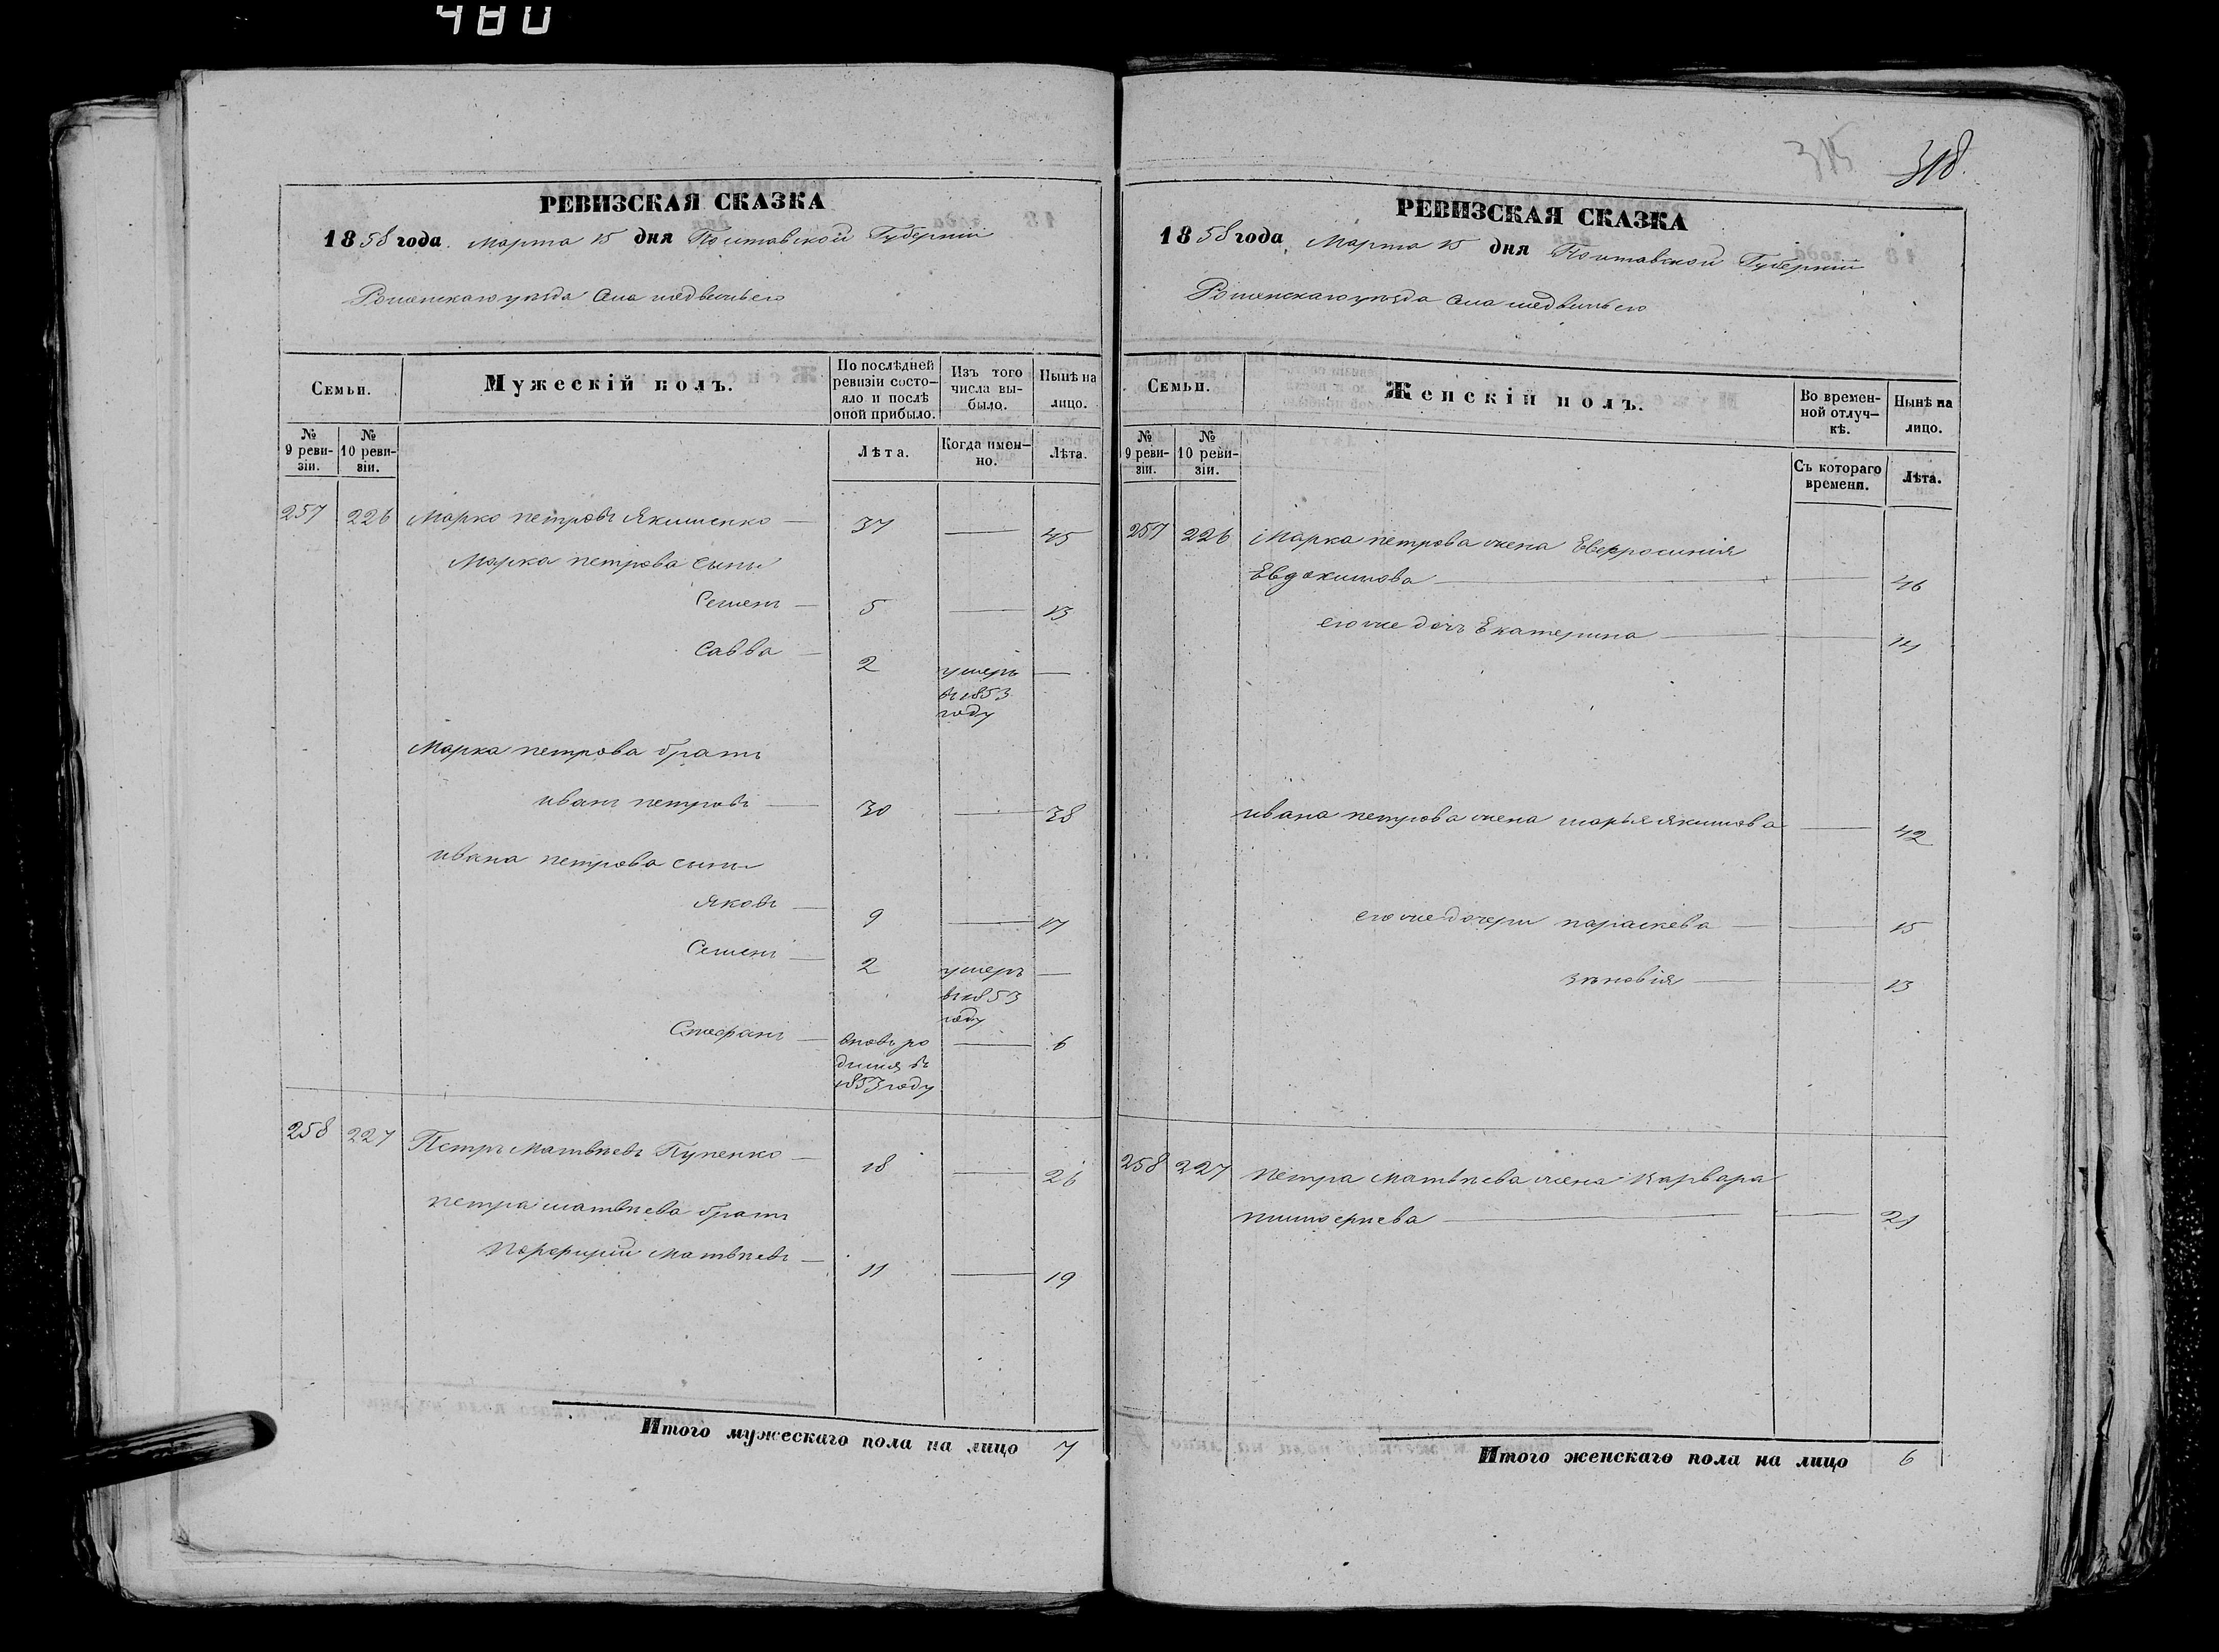 480
РЕВИЗСКАЯ СКАЗКА
1858 года Марта 15 дня Полтавской Губерніи
Роменскаго уѣзда Села медвежьего
Семьи.
Мужескій полъ.
По послѣдней ревизіи состояло и послѣ оной прибыло.
Изъ того числа выбыло.
Нынѣ на лицо.
№ 9 ревизіи.
№ 10 ревизіи.
Лѣта.
Когда именно.
Лѣта.
257 226 Марко петровъ Якименко — 37 — 45
Марка петрова сыны
Семенъ — 5 — 13
Савва — 2 умеръ —
въ 1853
году
Марка петрова братъ
иванъ петровъ — 30 — 38
ивана петрова сыны
яковъ — 9 — 17
Семенъ — 2 умеръ —
въ 1853
году
Стефанъ — вновь ро — 6
дился въ
1853 году
258 227 Петръ Матвѣевъ Пупенко — 18 — 26
петра матвѣева братъ
порфирій Матвѣевъ — 11 — 19
Итого мужескаго пола на лицо 7
315 318.
РЕВИЗСКАЯ СКАЗКА
1858 года Марта 15 дня Полтавской Губерніи
Роменскаго уѣзда Села медвежьего
Семьи.
Женскій полъ.
Во временной отлучкѣ.
Нынѣ на лицо.
№ 9 ревизіи.
№ 10 ревизіи.
Съ котораго времени.
Лѣта.
257 226 Марка петрова жена Евфросинія
Евдокимова — — 46
его же дочь Екатерина — — 14
ивана петрова жена марья якимова — 42
его же дочери параскева — — 15
зѣновія — — 13
258 227 петра Матвѣева жена Варвара
— — 21
Итого женскаго пола на лицо 6